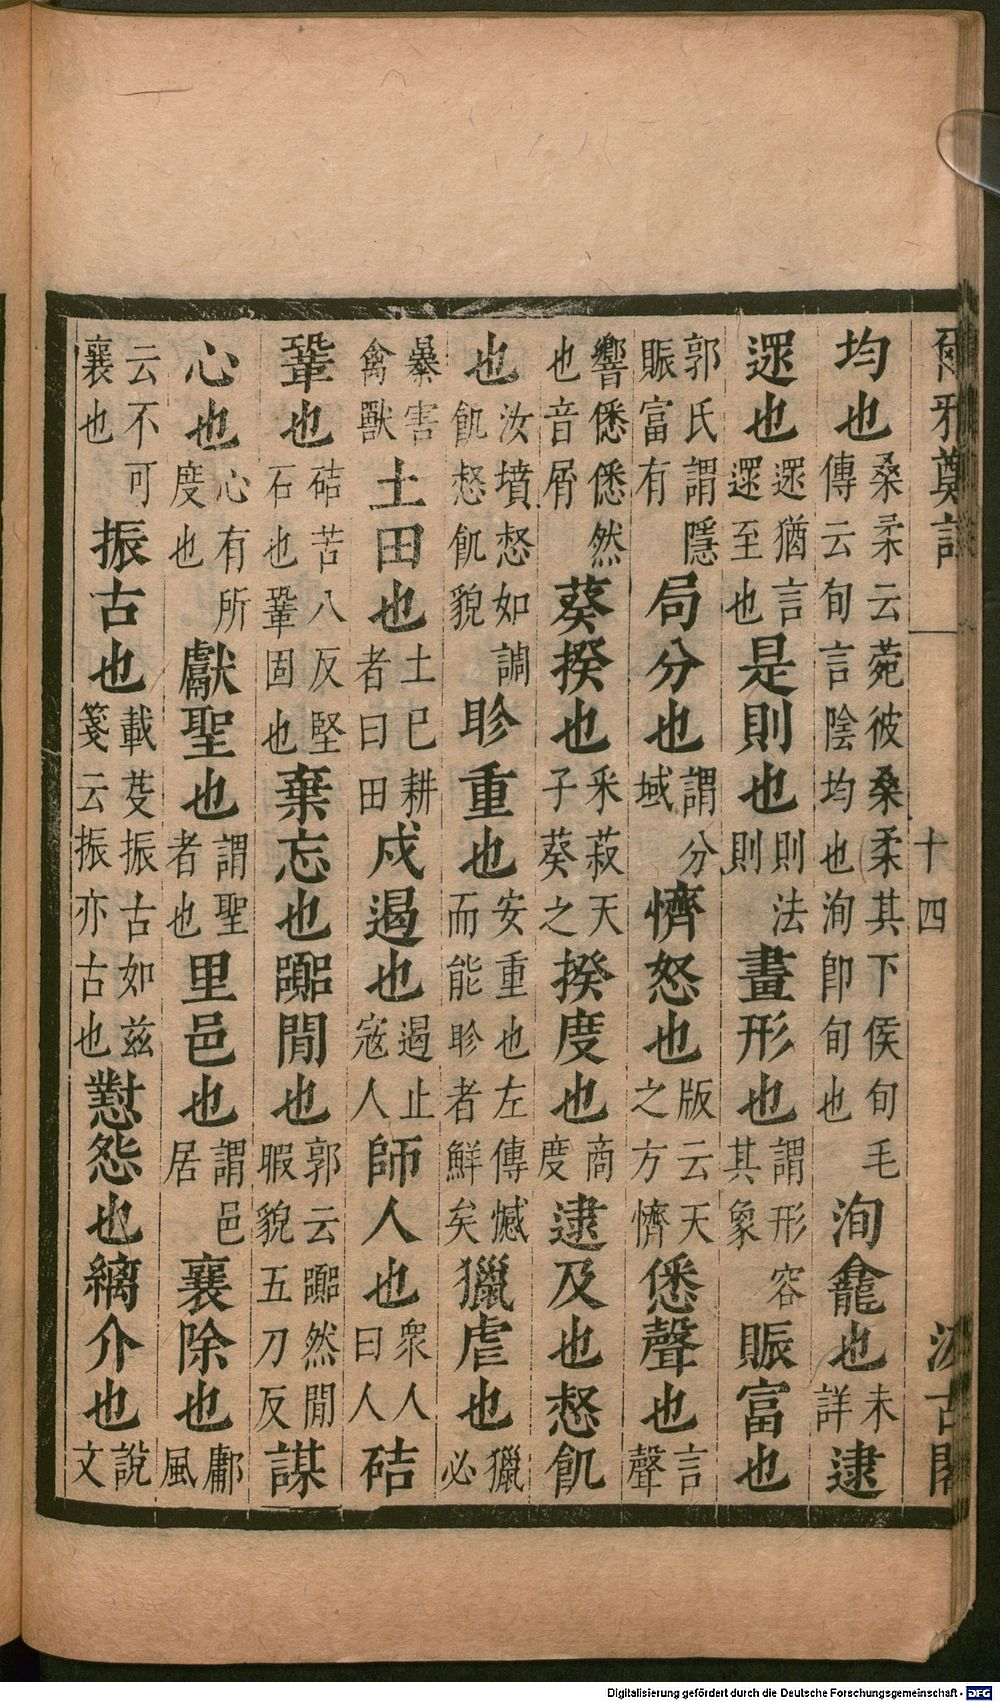 爾雅鄭註 十四 汲古閣
均也桑柔云菀彼桑柔其下侯旬毛傳云旬言陰均也洵卽旬也洵龕也未詳逮
遝也遝猶言遝至也是則也則法則畫形也謂形容其象賑富也
郭氏謂隱賑富有局分也謂分域懠怒也版云天之方懠僁聲也言聲
響僁僁然也音屑葵揆也釆菽天子葵之揆度也商度逮及也惄飢
也汝墳惄如調飢惄飢貌眕重也安重也左傳憾而能眕者鮮矣獵虐也獵必
暴害禽獸土田也土已耕者曰田戍遏也遏止寇人師人也衆人曰人硈
鞏也硈苦八反堅石也鞏固也棄忘也嚻閒也郭云嚻然閒暇貌五刀反謀
心也心有所度也獻聖也謂聖者也里邑也謂邑居襄除也鄘風
云不可襄也振古也載芟振古如茲箋云振亦古也懟怨也縭介也說文
Digitalisierung gefördert durch die Deutsche Forschungsgemeinschaft - DFG